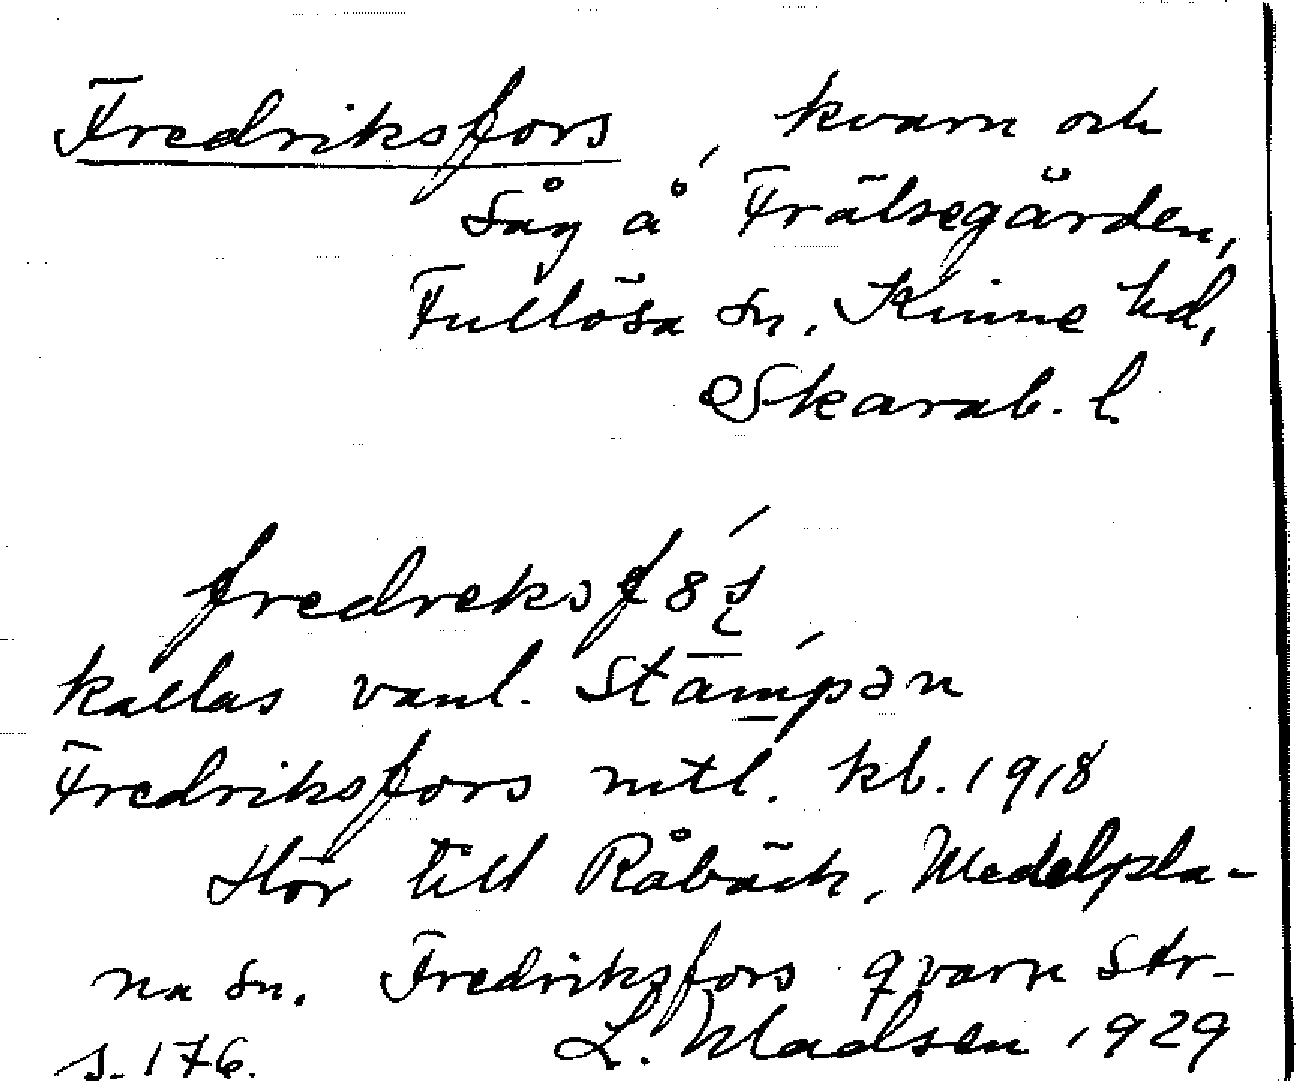 Fredriksfors, kvarn och
Såg å Frälsegården,
Fullösa sn, Kinne hd,
Skarab. l.
fredreksfȣș́
kallas vanl. Stāmpən
Fredriksfors mtl. kb. 1918
Hör till Råbäck, Medelpla-
na sn. Fredriksfors qvarn Str-
s. 176. L. Madsen 1929